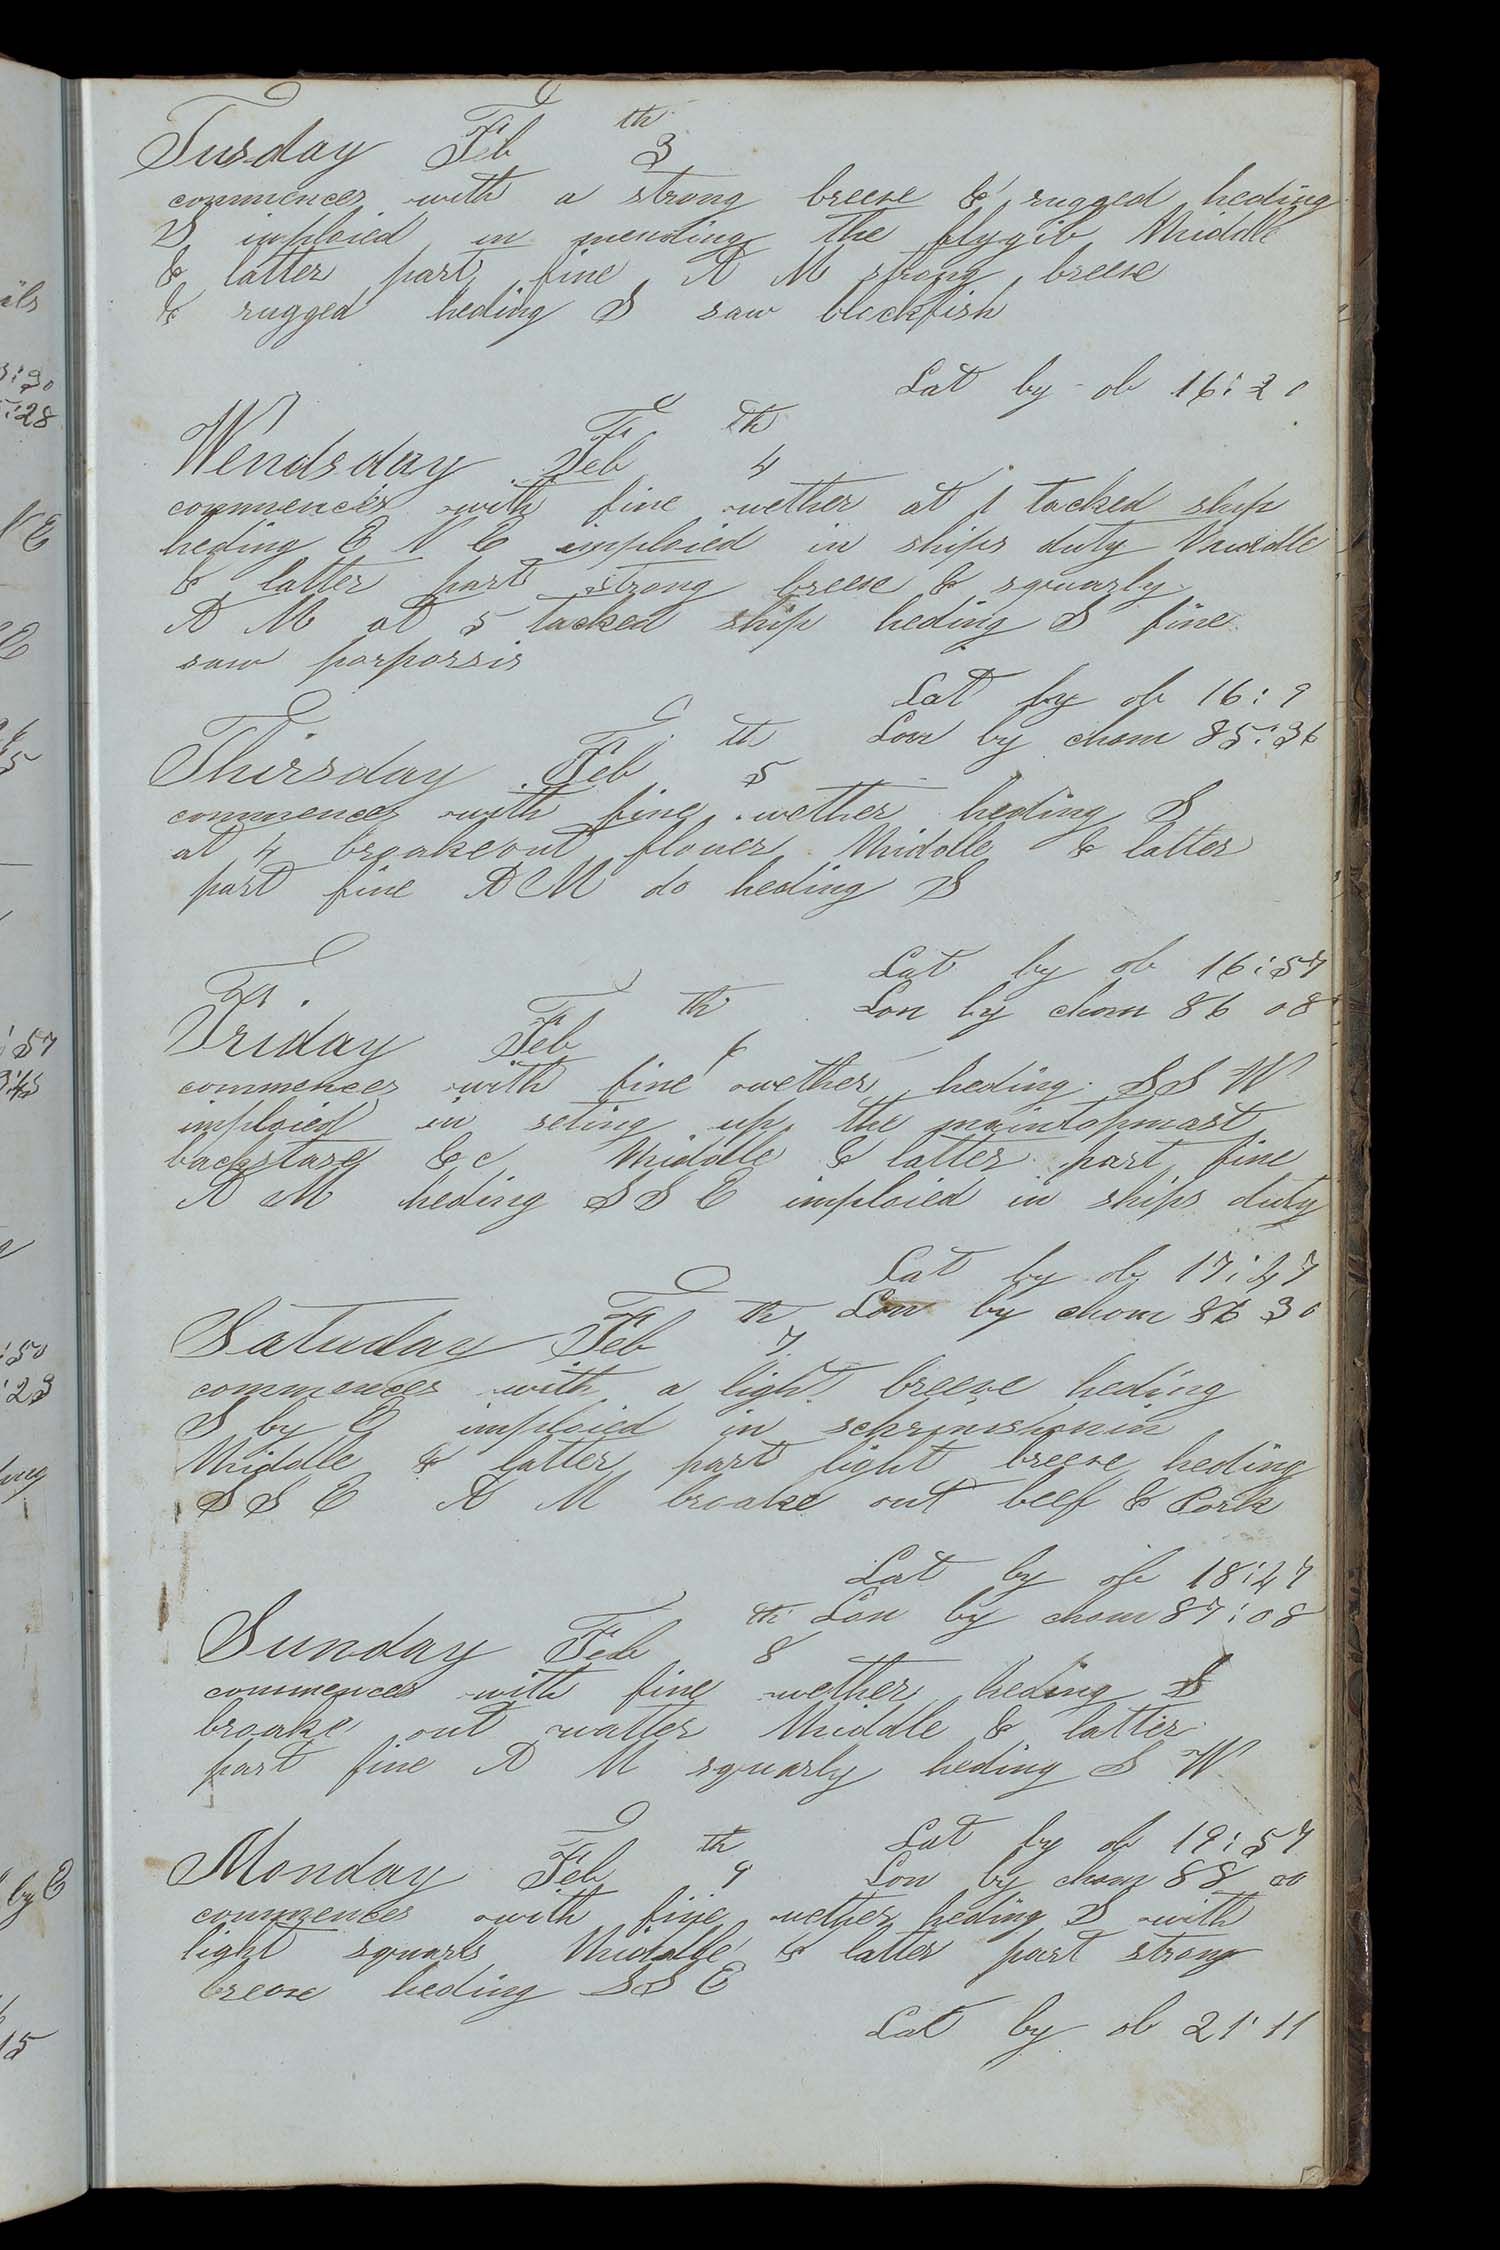 Tusday Feb 3th
commences with a strong breese & rugged heding
S imploied in mending the flygib Middle
& latter part fine A M strong breese
& rugged heding S saw blackfish
Lat by ob 16:20
Wendsday Feb 4th
commences with fine wether at 1 tacked ship
heding E N E imploied in ships duty Middle
& latter part strong breese & squarly
A M at 5 tacked ship heding S fine
saw porporsis
Lat by ob 16:9
Lon by chom 85:36
Thirsday Feb 5th
commences with fine wether heding S
at 4 broakeout flouer Middle & latter
part fine A M do heding S
Lat by ob 16:57
Lon by chom 86 08
Friday Feb 6th
commences with fine wether heding S S W
imploied in seting up the maintopmast
backstays &c Middle & latter part fine
A M heding S S E imploied in ships duty
Lat by ob 17:47
Lon by chom 86 30
Saturday Feb 7th
commences with a light breese heding
S by E imploied in schrimshonin
Middle & latter part light breese heding
S S E A M broake out beef & Pork
Lat by ob 18:47
Lon by chom 87:08
Sunday Feb 8th
commences with fine wether heding S
broake out watter Middle & latter
part fine A M squarly heding S W
Lat by ob 19:57
Lon by chom 88 00
Monday Feb 9th
commences with fine wether heding S with
light squarls Middle & latter part strong
breese heding S S E
Lat by ob 21:11